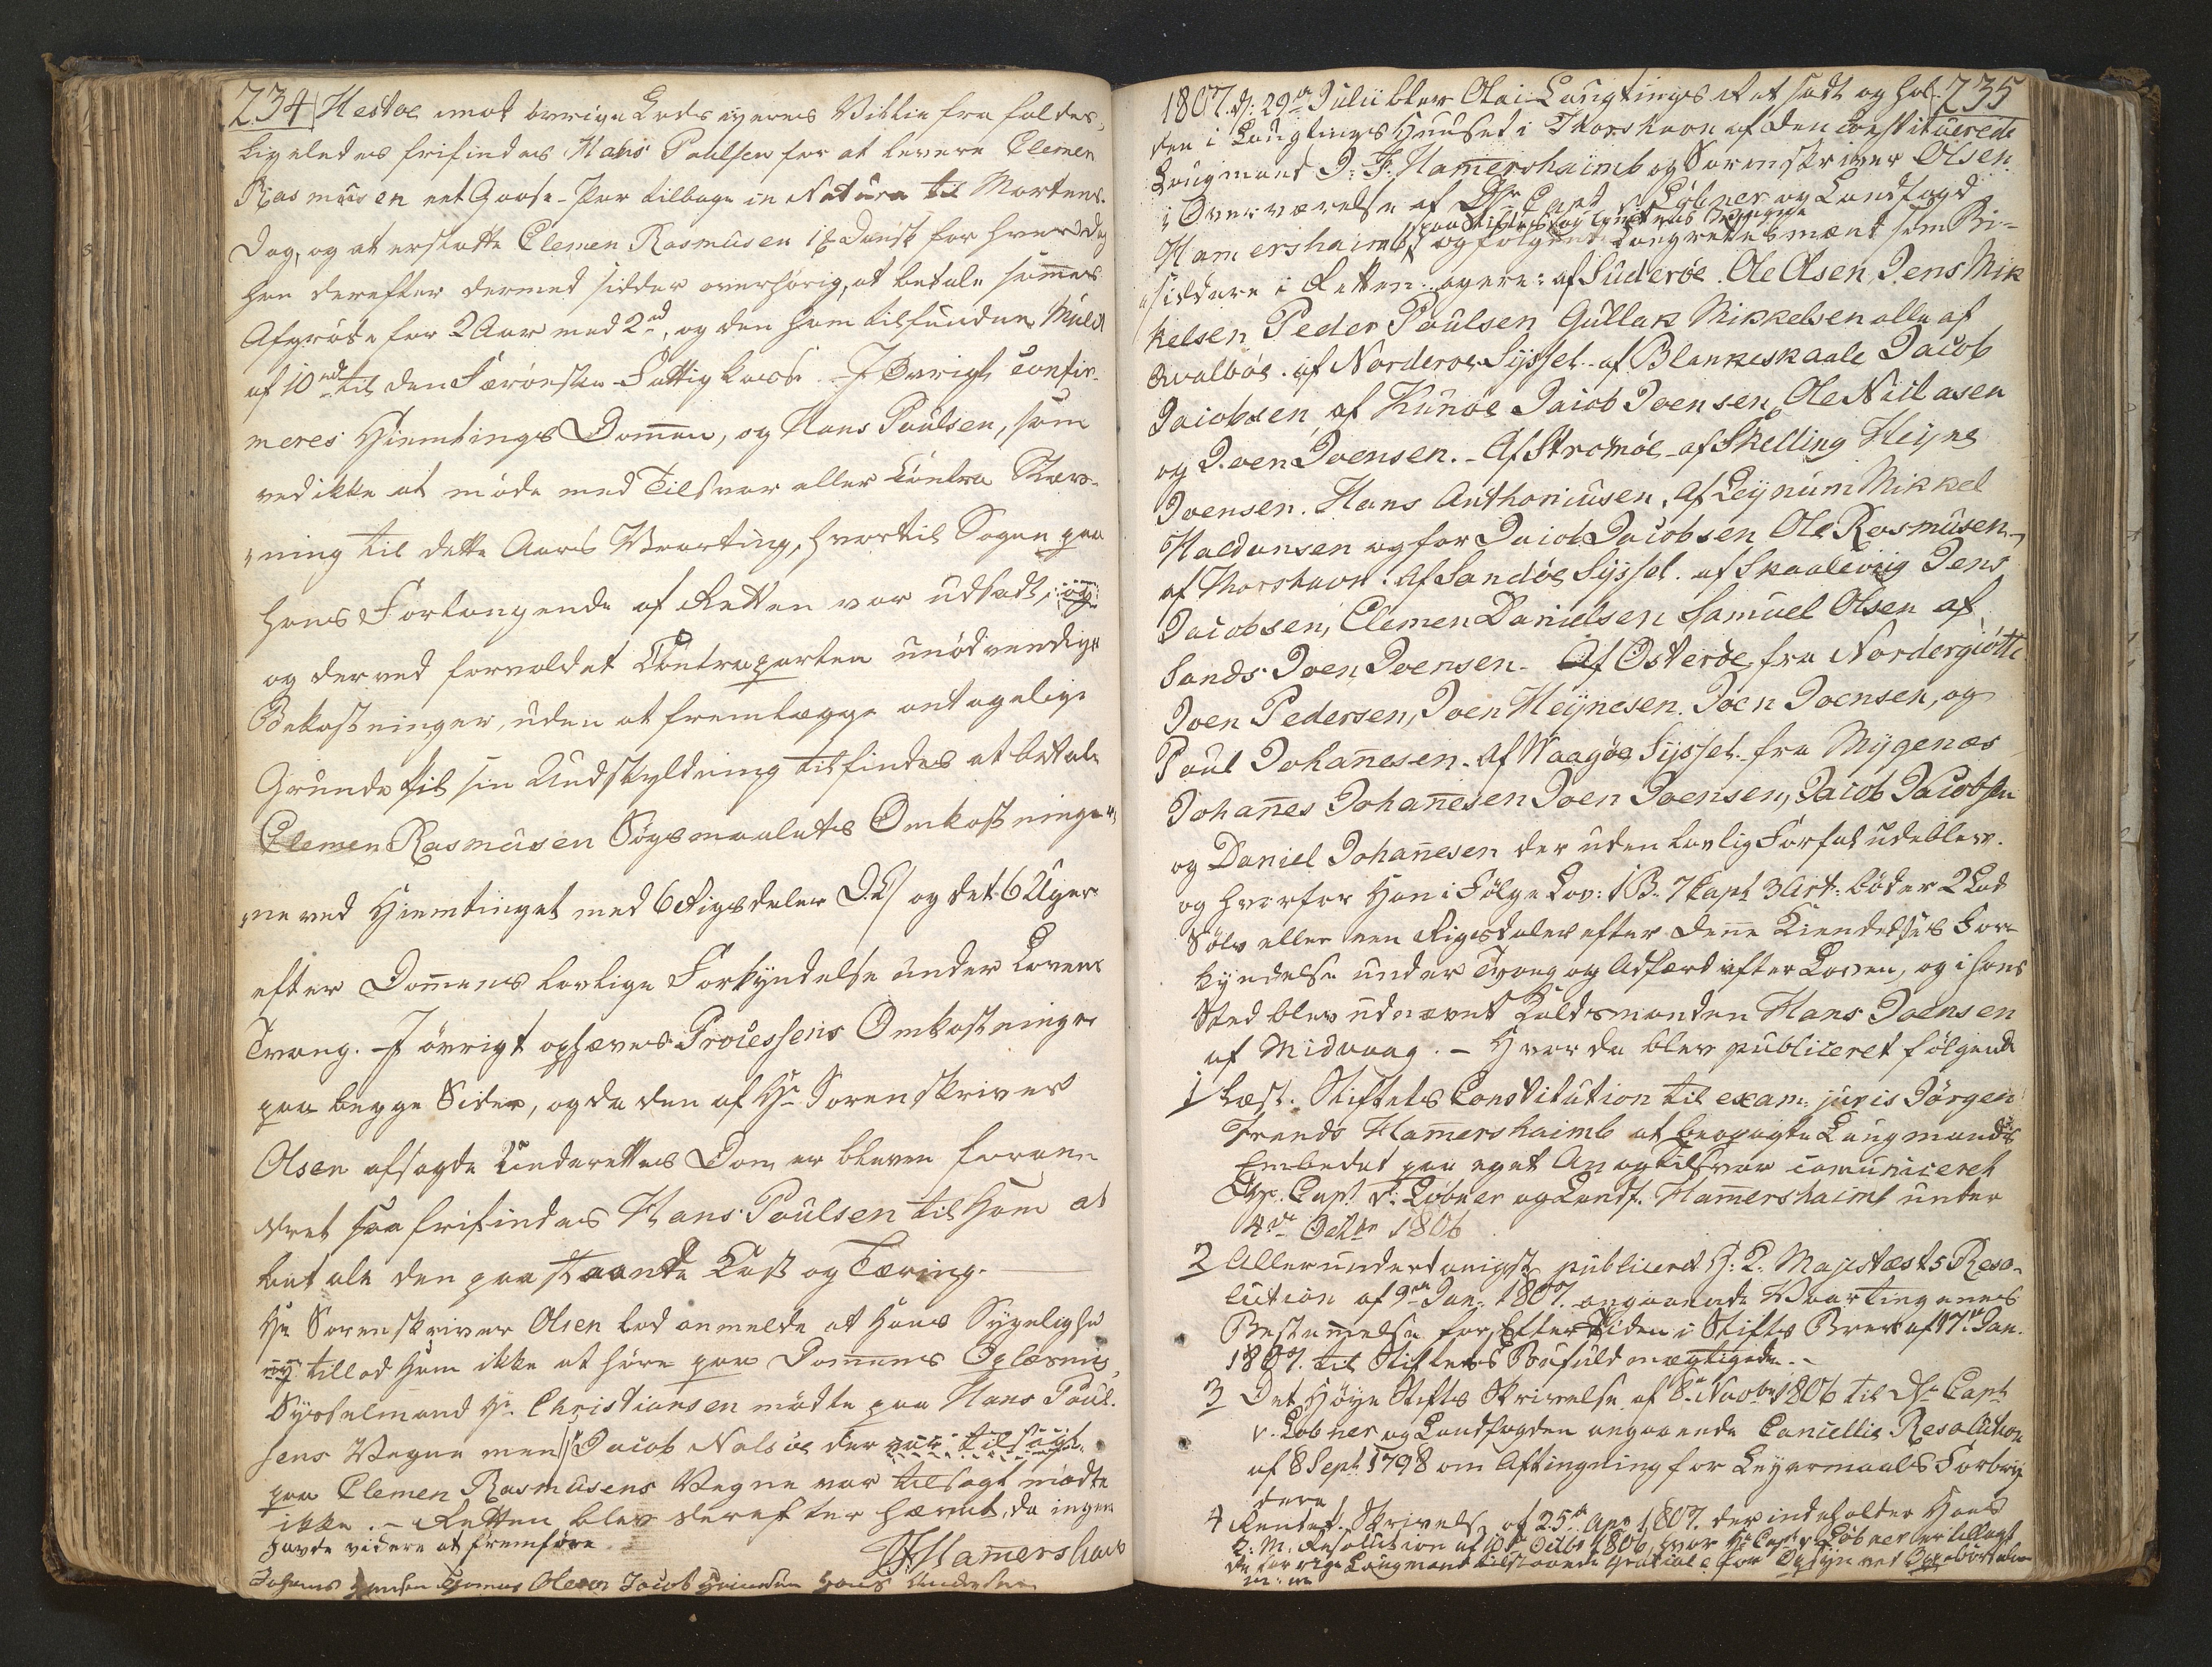 234
Hestøe imod øvrige Lods eyeres Villie fra faldes,
ligeledes frifindes Hans Poulsen for at levere Clemen
Rasmusen eet Goose-Par tilbage in Natura til Mortens-
Dag, og at erstatte Clemen Rasmusen 1 ß Dansk for hver Dag
han derefter dermed sidder overhørig, at betale sammes
Afgrøde for 2 Aar med 2 rd, og den ham tilfundne Mulct
af 10 rd til den Færøeske Fattig kasse. I Øvrigt confir-
meres Hiemtings Dom̅en, og Hans Poulsen, som
ved ikke at møde med Tilsvar eller Contra Stæv-
ning til dette Aars Vaarting, hvortil Sagen paa
hans Forlangende af Retten var udsadt, og
og derved forvoldet Contraparten unødvendige
Bekostninger, uden at fremlægge antagelige
Grunde til sin Undskyldning tilfindes at betale
Clemen Rasmusen Søgsmaalets Omkostninger
ne ved Hiemtinget med 6 Rigsdaler D.C/ og det 6 Uger
efter Dom̅ens lovlige Forkyndelse under Lovens
Tvang. I øvrigt ophæves Processens Omkostninger
paa begge Sider, og da den af Hr Sorenskriver
Olsen afsagde Underrettes Dom er bleven foran
dret saa frifindes Hans Poulsen til ham at
betale den paastaaende Kost og Tæring.
Hr Sorenskriver Olsen lod anmelde at Hans Sygelighed
ey tillod ham ikke at høre paa Dom̅ens Oplæsning,
Sysselmand Hr Christiansen mødte paa Hans Poul-
sens Vegne men Jacob Nalsøe der var tilsagt
paa Clemen Rasmusens Vegne var tilsagt mødte
ikke. - Retten blev derefter hævet, da ingen
havde videre at fremføre
JFHamershaib
Johanes Hansen Thomas Olesen Jacob Hans Andersen
235
1807. d: 29de Julii blev Olai Laugtings Ret sadt og hol-
den i Laugtings Huuset i Thorshavn af den Constituerede
Laugmand J: F: Ham̅ershaimb og Sorenskriver Olsen
i Overværelse af Hr Capt v Løbner og Landfogd
Ham̅ershaimb og følgende Laugrettesmænt som Bi-
siddere i Retten agere: af Suderøe. Ole Olsen, Jens Mik
kelsen Peder Poulsen Gullak Mikkelsen alle af
Qvalbøe. af Norderøe Syssel - af Blankeskaale Jacob
Jacobsen, af Kunøe Jacob Joensen, Ole Niclasen
og Joen Joensen. - Af Stromøe - af Skelling Heyne
Joensen. Hans Anthoniusen, af Leynum Mikkel
Haldansen og for Jacob Jacobsen Ole Rasmusen,
af Thorshavn: Af Sandøe Syssel. af Skaalevig Jens
Jacobsen, Clemen Danielsen Samuel Olsen af
Sands Joen Joensen - Af Østerøe, fra Nordergiøtte
Joen Pedersen, Joen Heynesen. Joen Joensen, og
Poul Johan̅esen. Af Waagøe Syssel. fra Mygenæs
Johan̅es Johan̅esen Joen Joensen, Jacob Jacobsen
og Daniel Johan̅esen der uden lovlig Forfald udeblev.
og hvorfor Han i Følge Lov: 1 B. 7 Capt 3 Art: bøder 2 Lod
Sølv eller een Rigsdaler efter denne Kiendelses For-
kyndelse under Tvang og Adfærd efter Loven, og i hans
Sted blev udnævnt Kaldsmanden Hans Joensen
af Midvaag. - Hvor da blev publiceret følgende
1 Læst. Stiftets Constitution til exam: juris Jørgen
Frands Ham̅ershaimb at besørge Laugmands
Embedet paa eget An og tilsvar com̅uniceret
Hr. Capt v: Løbner og Landf. Ham̅ershaimb under
4de Octbr 1806
2 Allerunderdanigst publiceret H: K: Majestæts Reso-
lution af 9de Jan: 1807. angaaende Vaartingenes
Bestem̅else for Eftertiden i Stifts Brev af 17de Jan.
1807. til Stiftets Befuldmægtigede. -
3 Det Høye Stifts Skrivelse af 8de Novbr 1806 til Hr Capt
v. Løbner og Landfogden angaaende Cancellie Resolution
af 8 Sept 1798 om Aftingning for Leyermaals Forbry
dere
4 Rentek. Skrivelse af 25de Apr 1807. der indeholder Hans
K: M. Resolution af Octbr 1806, hvor Hr Capt v Løbner er tillagt
de forrige Laugmand tilstaaende Gratiale for Opsyn ved
m: m